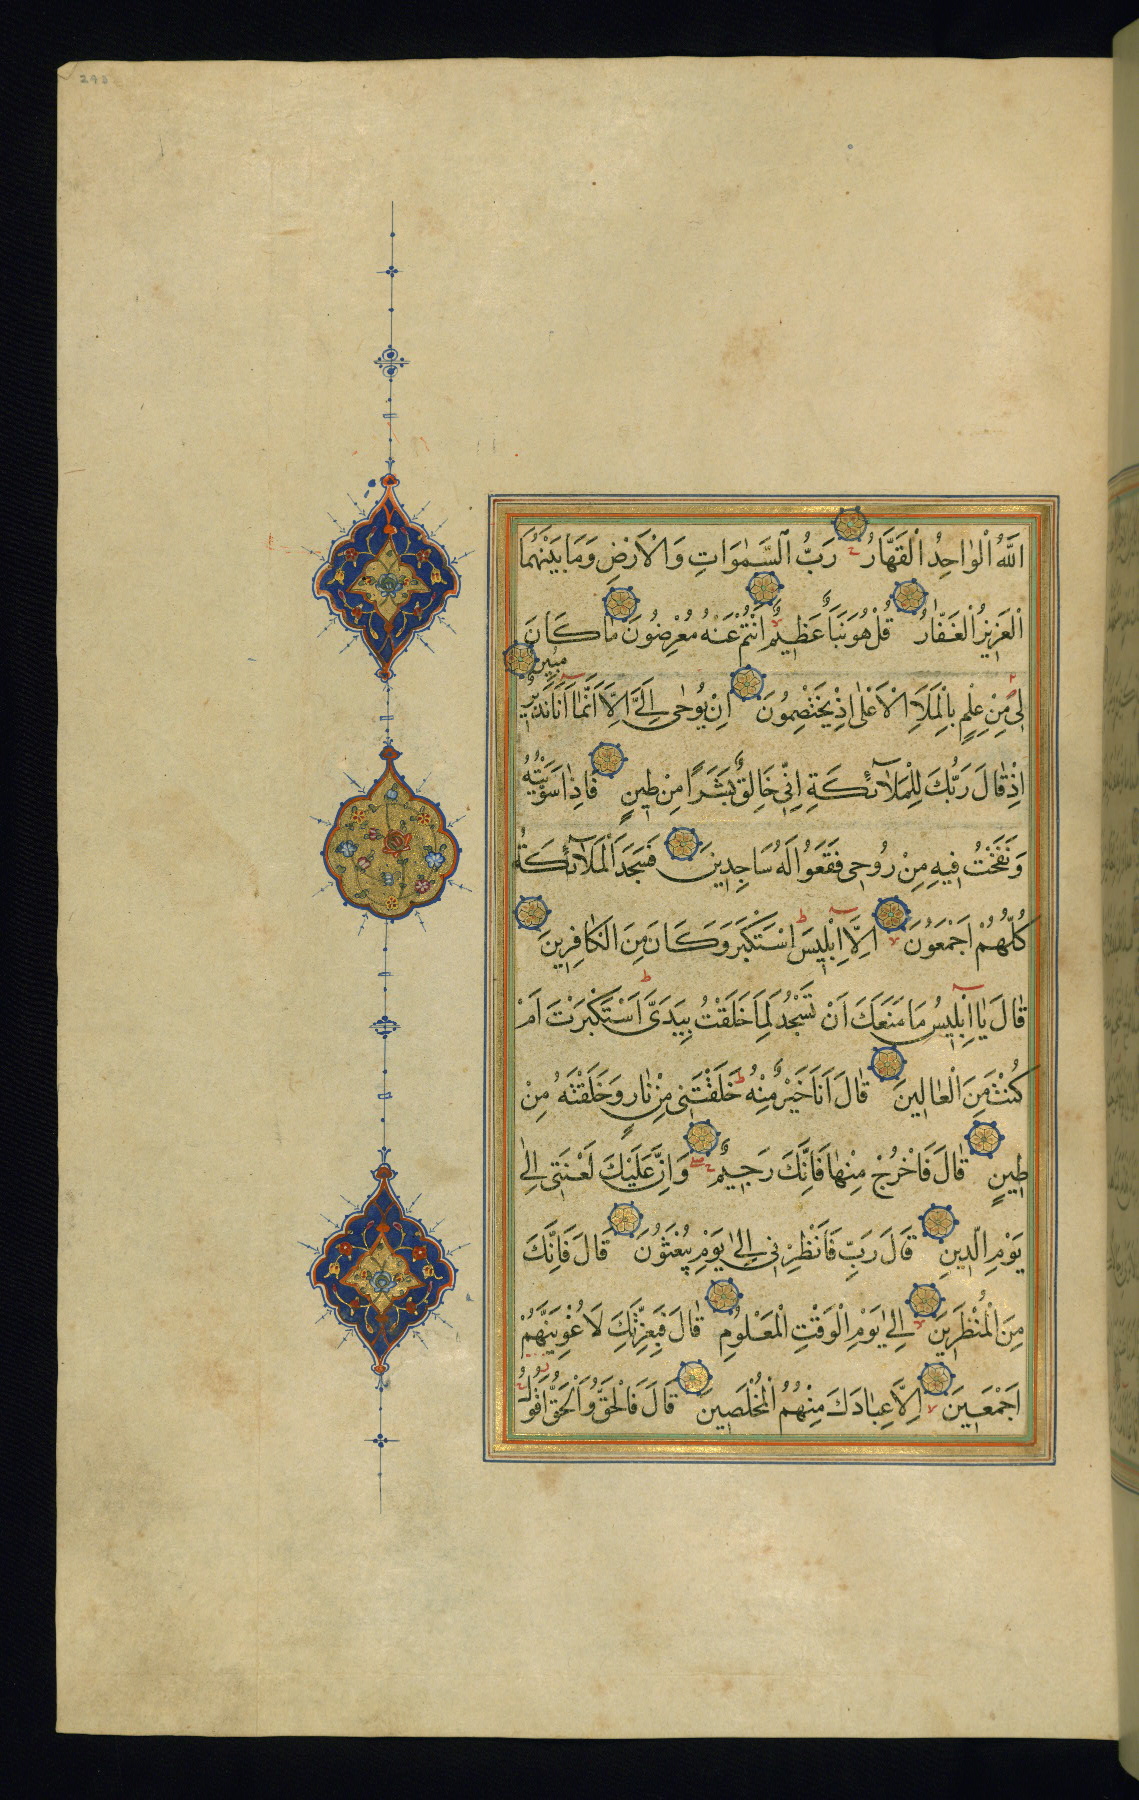 293
اللّٰهُ الْوٰاحِدُ الْقَهَّارُ رَبُّ السَّمٰوَاتِ وَالْاَرْضِ وَمَا بَيْنَهُمَا
الْعَزِيزُ الْغَفّٰارُ قُلْ هُوَ نَبَأٌ عَظِيمٌ اَنْتُمْ عَنْهُ مُعْرِضُونَ مٰا كَانَ
لِيَ مِنْ عِلْمٍ بِالْمَلَاِ الْاَعْلٰى اِذْ يَخْتَصِمُونَ اِنْ يُوحٰى اِلَيَّ اِلَّا اَنَّمٰا اَنَا نَذِيرٌ مُبِينٌ
اِذْ قٰالَ رَبُّكَ لِلْمَلٰائِكَةِ اِنِّي خَالِقٌ بَشَرًا مِنْ طِينٍ فَاِذٰا سَوَّيْتُهُ
وَنَفَخْتُ فِيهِ مِنْ رُوحِي فَقَعُوا لَهُ سَاجِدِينَ فَسَجَدَ الْمَلٰائِكَةُ
كُلُّهُمْ اَجْمَعُونَ اِلَّا اِبْلِيسَ اسْتَكْبَرَ وَكَانَ مِنَ الْكٰافِرِينَ
قٰالَ يٰا اِبْلِيسُ مَا مَنَعَكَ اَنْ تَسْجُدَ لِمَا خَلَقْتُ بِيَدَيَّ اَسْتَكْبَرْتَ اَمْ
كُنْتَ مِنَ الْعٰالِينَ قٰالَ اَنَا خَيْرٌ مِنْهُ خَلَقْتَنِي مِنْ نٰارٍ وَخَلَقْتَهُ مِنْ
طِينٍ قٰالَ فَاخْرُجْ مِنْهٰا فَاِنَّكَ رَجِيمٌ وَاِنَّ عَلَيْكَ لَعْنَتِي اِلٰى
يَوْمِ الدِّينِ قَالَ رَبِّ فَاَنْظِرْنِي اِلٰى يَوْمِ يُبْعَثُونَ قَالَ فَاِنَّكَ
مِنَ الْمُنْظَرِينَ اِلٰى يَوْمِ الْوَقْتِ الْمَعْلُومِ قٰالَ فَبِعِزَّتِكَ لَاُغْوِيَنَّهُمْ
اَجْمَعِينَ اِلَّا عِبٰادَكَ مِنْهُمُ الْمُخْلَصِينَ قَالَ فَالْحَقُّ وَالْحَقَّ اَقُولُ